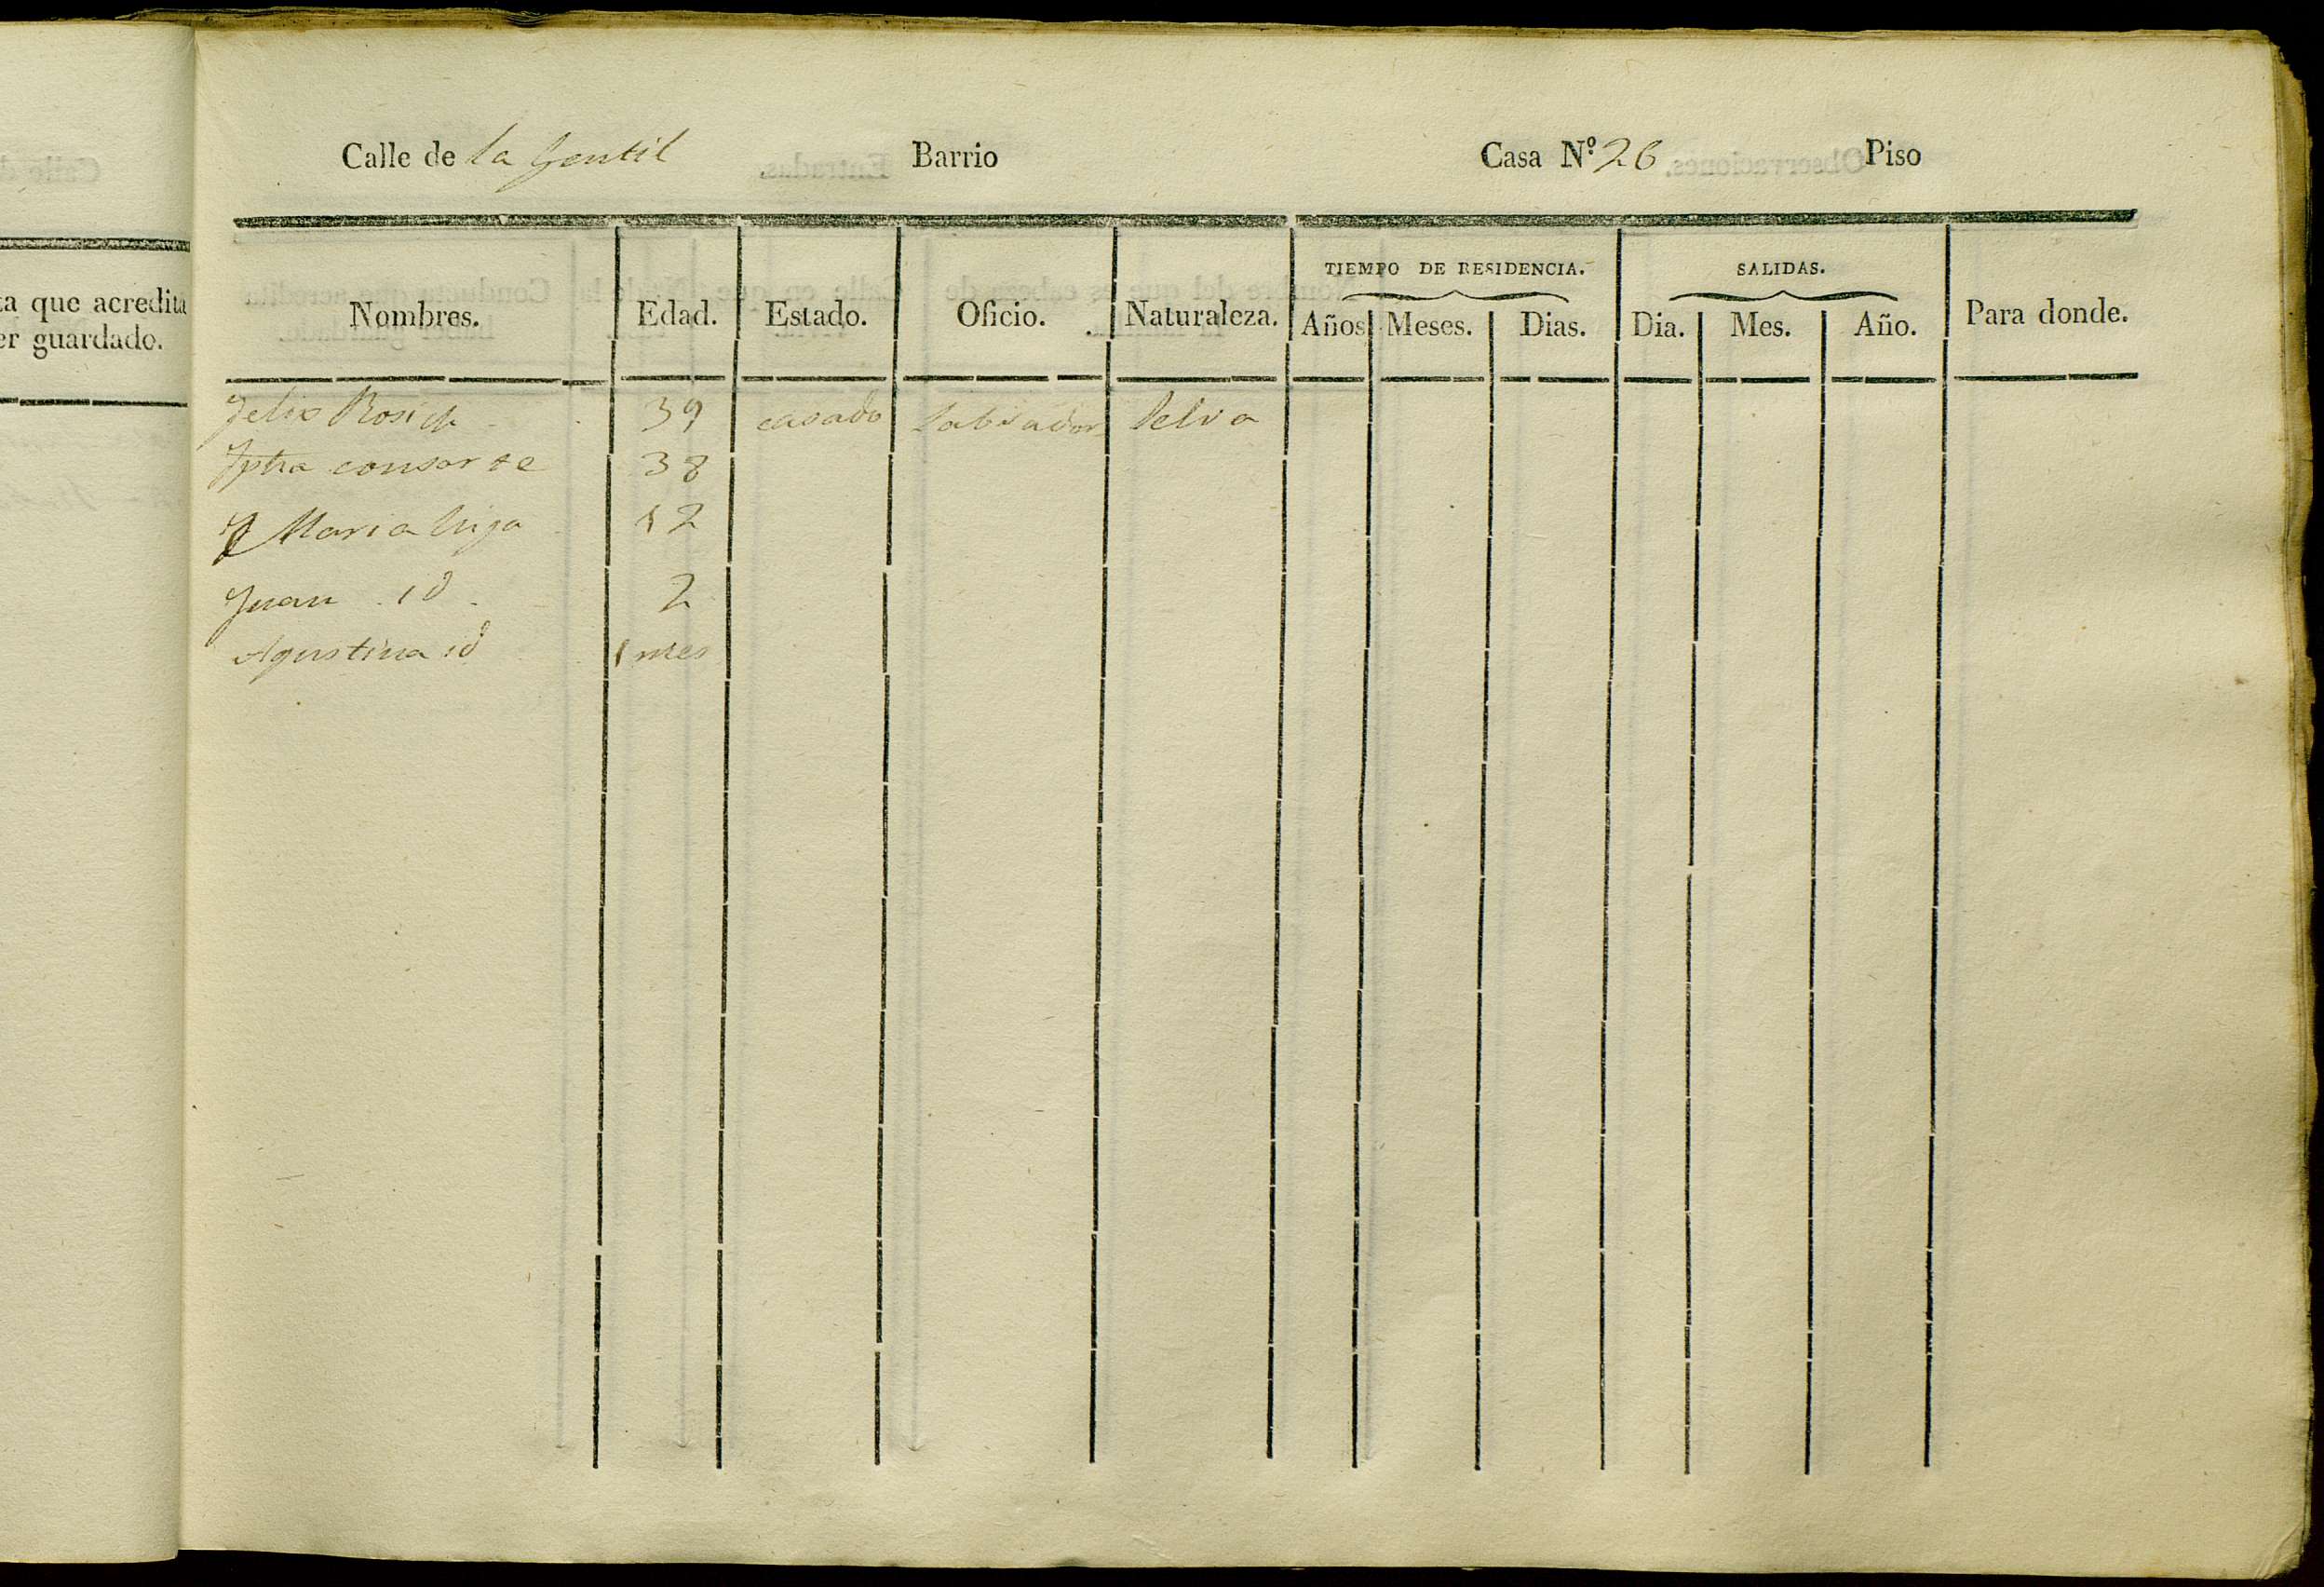 Calle de la Gentil Barrio Casa Nº 26 Piso
TIEMPO DE RESIDENCIA. SALIDAS.
Nombres. Edad. Estado. Oficio. Naturaleza. Años Meses. Dias. Dia. Mes. Año. Para donde.
Felix Rosich 39 casado Labrador Selva
consorte 38
Maria hija 12
Juan id 2
Agustina id 1 mes
ta que acredita
er guardado.